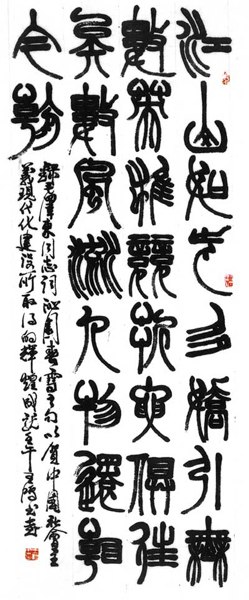 江山如此多嬌引無
數英雄競折腰俱往
矣數風流人物還看
今朝
毛澤東同志詞沁園春雪之句以賀中國社會主
義現代化建設所取得的輝煌成就